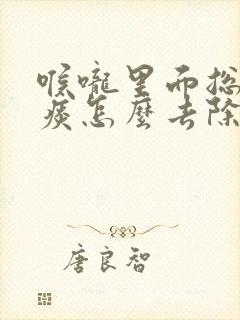 喉嚨里而総
痰怎麼去除
唐良智